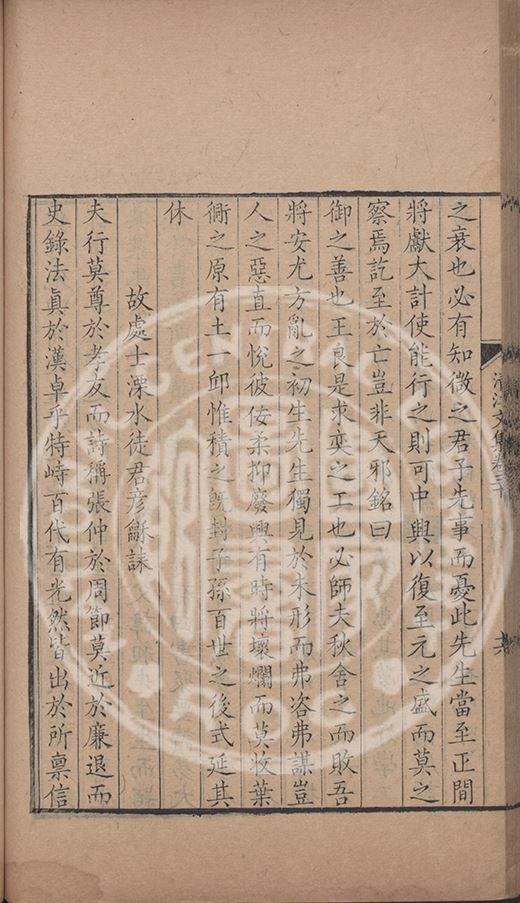 之衰也必有知微之君子先事而憂此先生當至正間
將獻大計使能行之則可中興以復至元之盛而莫之
察焉訖至於亡豈非天邪銘曰
御之善也王良是求奕之工也必師夫秋舍之而敗吾
將安尤方亂之初生先生獨見於未形而弗咨弗謀豈
人之惡直而悅彼佞柔抑廢興有時將壞爛而莫收葉
衕之原有土一邱惟積之旣封子孫百世之後式延其
休
故處士溧水徒君彦龢誄
夫行莫尊於孝友而詩稱張仲於周節莫近於廉退而
史錄法眞於漢卓乎特峙百代有光然皆出於所禀信
清江文集卷三十